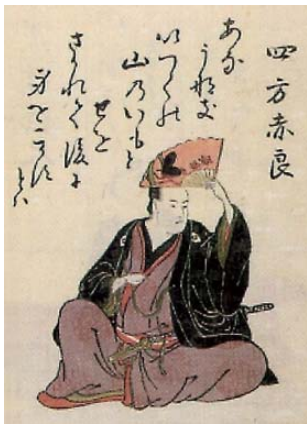 四方赤良
あな
うなき
いつくの
山のいもと
せを
さかれて後に
身をこかす
とハ